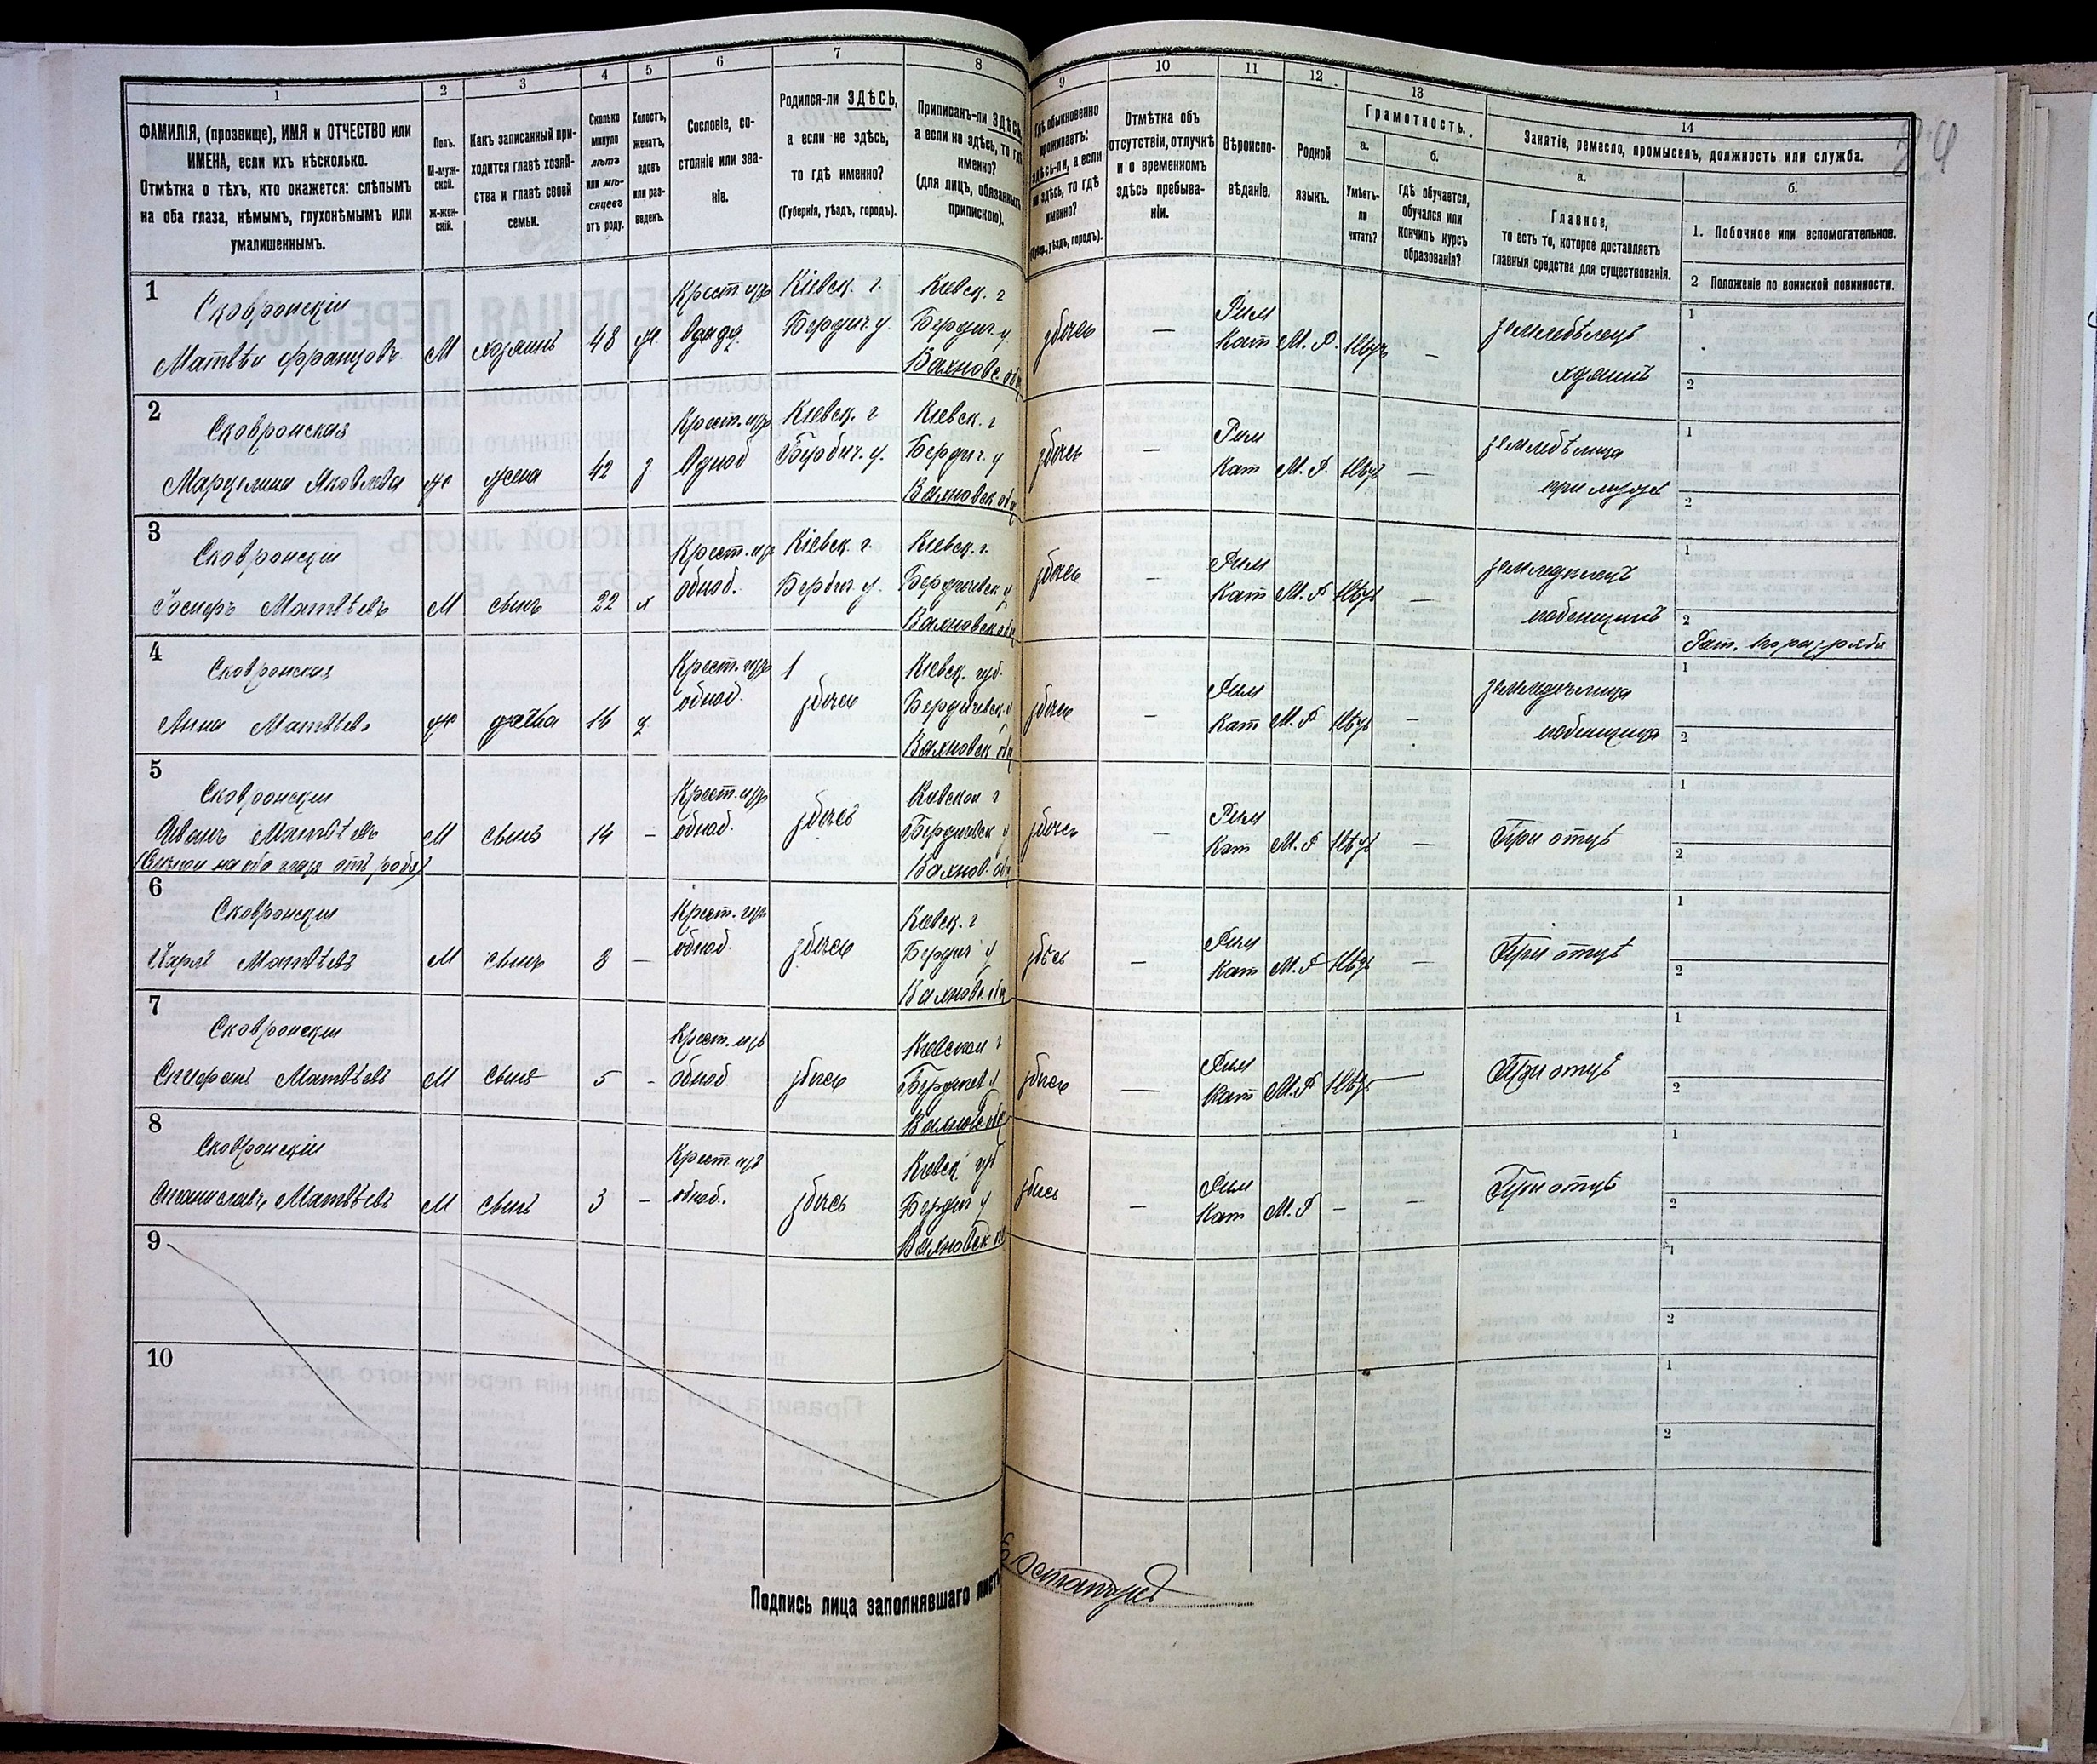 1
ФАМИЛІЯ, (прозвище), ИМЯ и ОТЧЕСТВО или
ИМЕНА, если ихъ нѣсколько.
Отмѣтка о тѣхъ, кто окажется: слѣпымъ
на оба глаза, нѣмымъ, глухонѣмымъ или
умалишеннымъ.
2
Полъ.
М-муж-
ской.
Ж-жен-
скій.
3
Какъ записанный при-
ходится главѣ хозяй-
ства и главѣ своей
семьи.
4
Сколько
минуло
лѣтъ
или мѣ-
сяцевъ
отъ роду.
5
Холостъ,
женатъ,
вдовъ
или раз-
веденъ.
6
Сословіе, со-
стояніе или зва-
ніе.
7
Родился-ли ЗДѢСЬ,
а если не здѣсь,
то гдѣ именно?
(Губернія, уѣздъ, городъ).
8
Приписанъ-ли ЗДѢСЬ,
а если не здѣсь, то гдѣ
именно?
(для лицъ, обязанныхъ
припискою).
9
Гдѣ обыкновенно
проживаетъ:
здѣсь-ли, а если
не здѣсь, то гдѣ
именно?
уѣздъ, городъ).
10
Отмѣтка объ
отсутствіи, отлучкѣ
и о временномъ
здѣсь пребыва-
ніи.
11
Вѣроиспо-
вѣданіе.
12
Родной
языкъ.
13
Грамотность.
а.
Умѣетъ-
ли
читать?
б.
гдѣ обучается,
обучался или
кончилъ курсъ
образованія?
14
Занятіе, ремесло, промыселъ, должность или служба.
а.
Главное,
то есть то, которое доставляетъ
главныя средства для существованія.
б.
1. Побочное или вспомогательное.
2 Положеніе по воинской повинности.
1
Сковронскій
Матвѣй Францовъ
М
хозяинъ
48
ж.
Крест. изъ
Однод.
Кіевск. г.
Бердич. у.
Кіевск. г
Бердич. у
Вахновс. общ
здѣсь
—
Рим
Кат
М. Р.
Нѣтъ
—
земледѣлецъ
хозяинъ
1
2
2
Сковронская
Марцелина Яковлева
ж
жена
42
з
Крест. изъ
Однод
Кіевск. г
Бердич. у.
Кіевск. г
Бердич. у
Вахновск общ
здѣсь
—
Рим
Кат
М. Р.
Нѣтъ
—
земледѣлица
при мужѣ
1
2
3
Сковронскій
Іосифъ Матвѣевъ
М
сынъ
22
х
Крест. изъ
однод.
Кіевск. г.
Бердич. у.
Кіевск. г.
Бердичевск у
Вахновск общ
здѣсь
—
Рим
Кат
М. Р
Нѣтъ
—
земледѣлецъ
поденщикъ
1
2
Рат. разряда
4
Сковронская
Анна Матвѣева
ж
дочка
16
Крест. изъ
однод.
здѣсь
Кіевск. губ.
Бердичевск. у
Вахновск общ
здѣсь
—
Рим
Кат
М. Р
Нѣтъ
—
земледѣлица
поденщица
1
2
5
Сковронскій
Иванъ Матвѣевъ
(Слѣпой на оба глаза отъ роду)
М
сынъ
14
—
Крест. изъ
однод.
здѣсь
Кіевской г
Бердичевск у
Вахнов. общ
здѣсь
—
Рим
Кат
М. Р
Нѣтъ
—
При отцѣ
1
2
6
Сковронскій
Карлъ Матвѣевъ
М
сынъ
8
—
Крест. изъ
однод.
здѣсь
Кіевск. г
Бердич у
Вахновс. общ
здѣсь
—
Рим
Кат
М. Р
Нѣтъ
—
При отцѣ
1
2
7
Сковронскій
Стефанъ Матвѣевъ
М
Сынъ
5
-
Крест. изъ
однод
здѣсь
Кіевской г
Бердичев у
Вахновс общ
здѣсь
—
Рим
Кат
М. Р
Нѣтъ
—
При отцѣ
1
2
8
Сковронскій
Станиславъ Матвѣевъ
М
сынъ
3
—
Крест. изъ
однод.
здѣсь
Кіевск губ
Бердич у
Вахновск об
здѣсь
—
Рим
Кат
М. Р
—
—
При отцѣ
1
2
9
1
2
10
1
2
Подпись лица заполнявшаго листъ